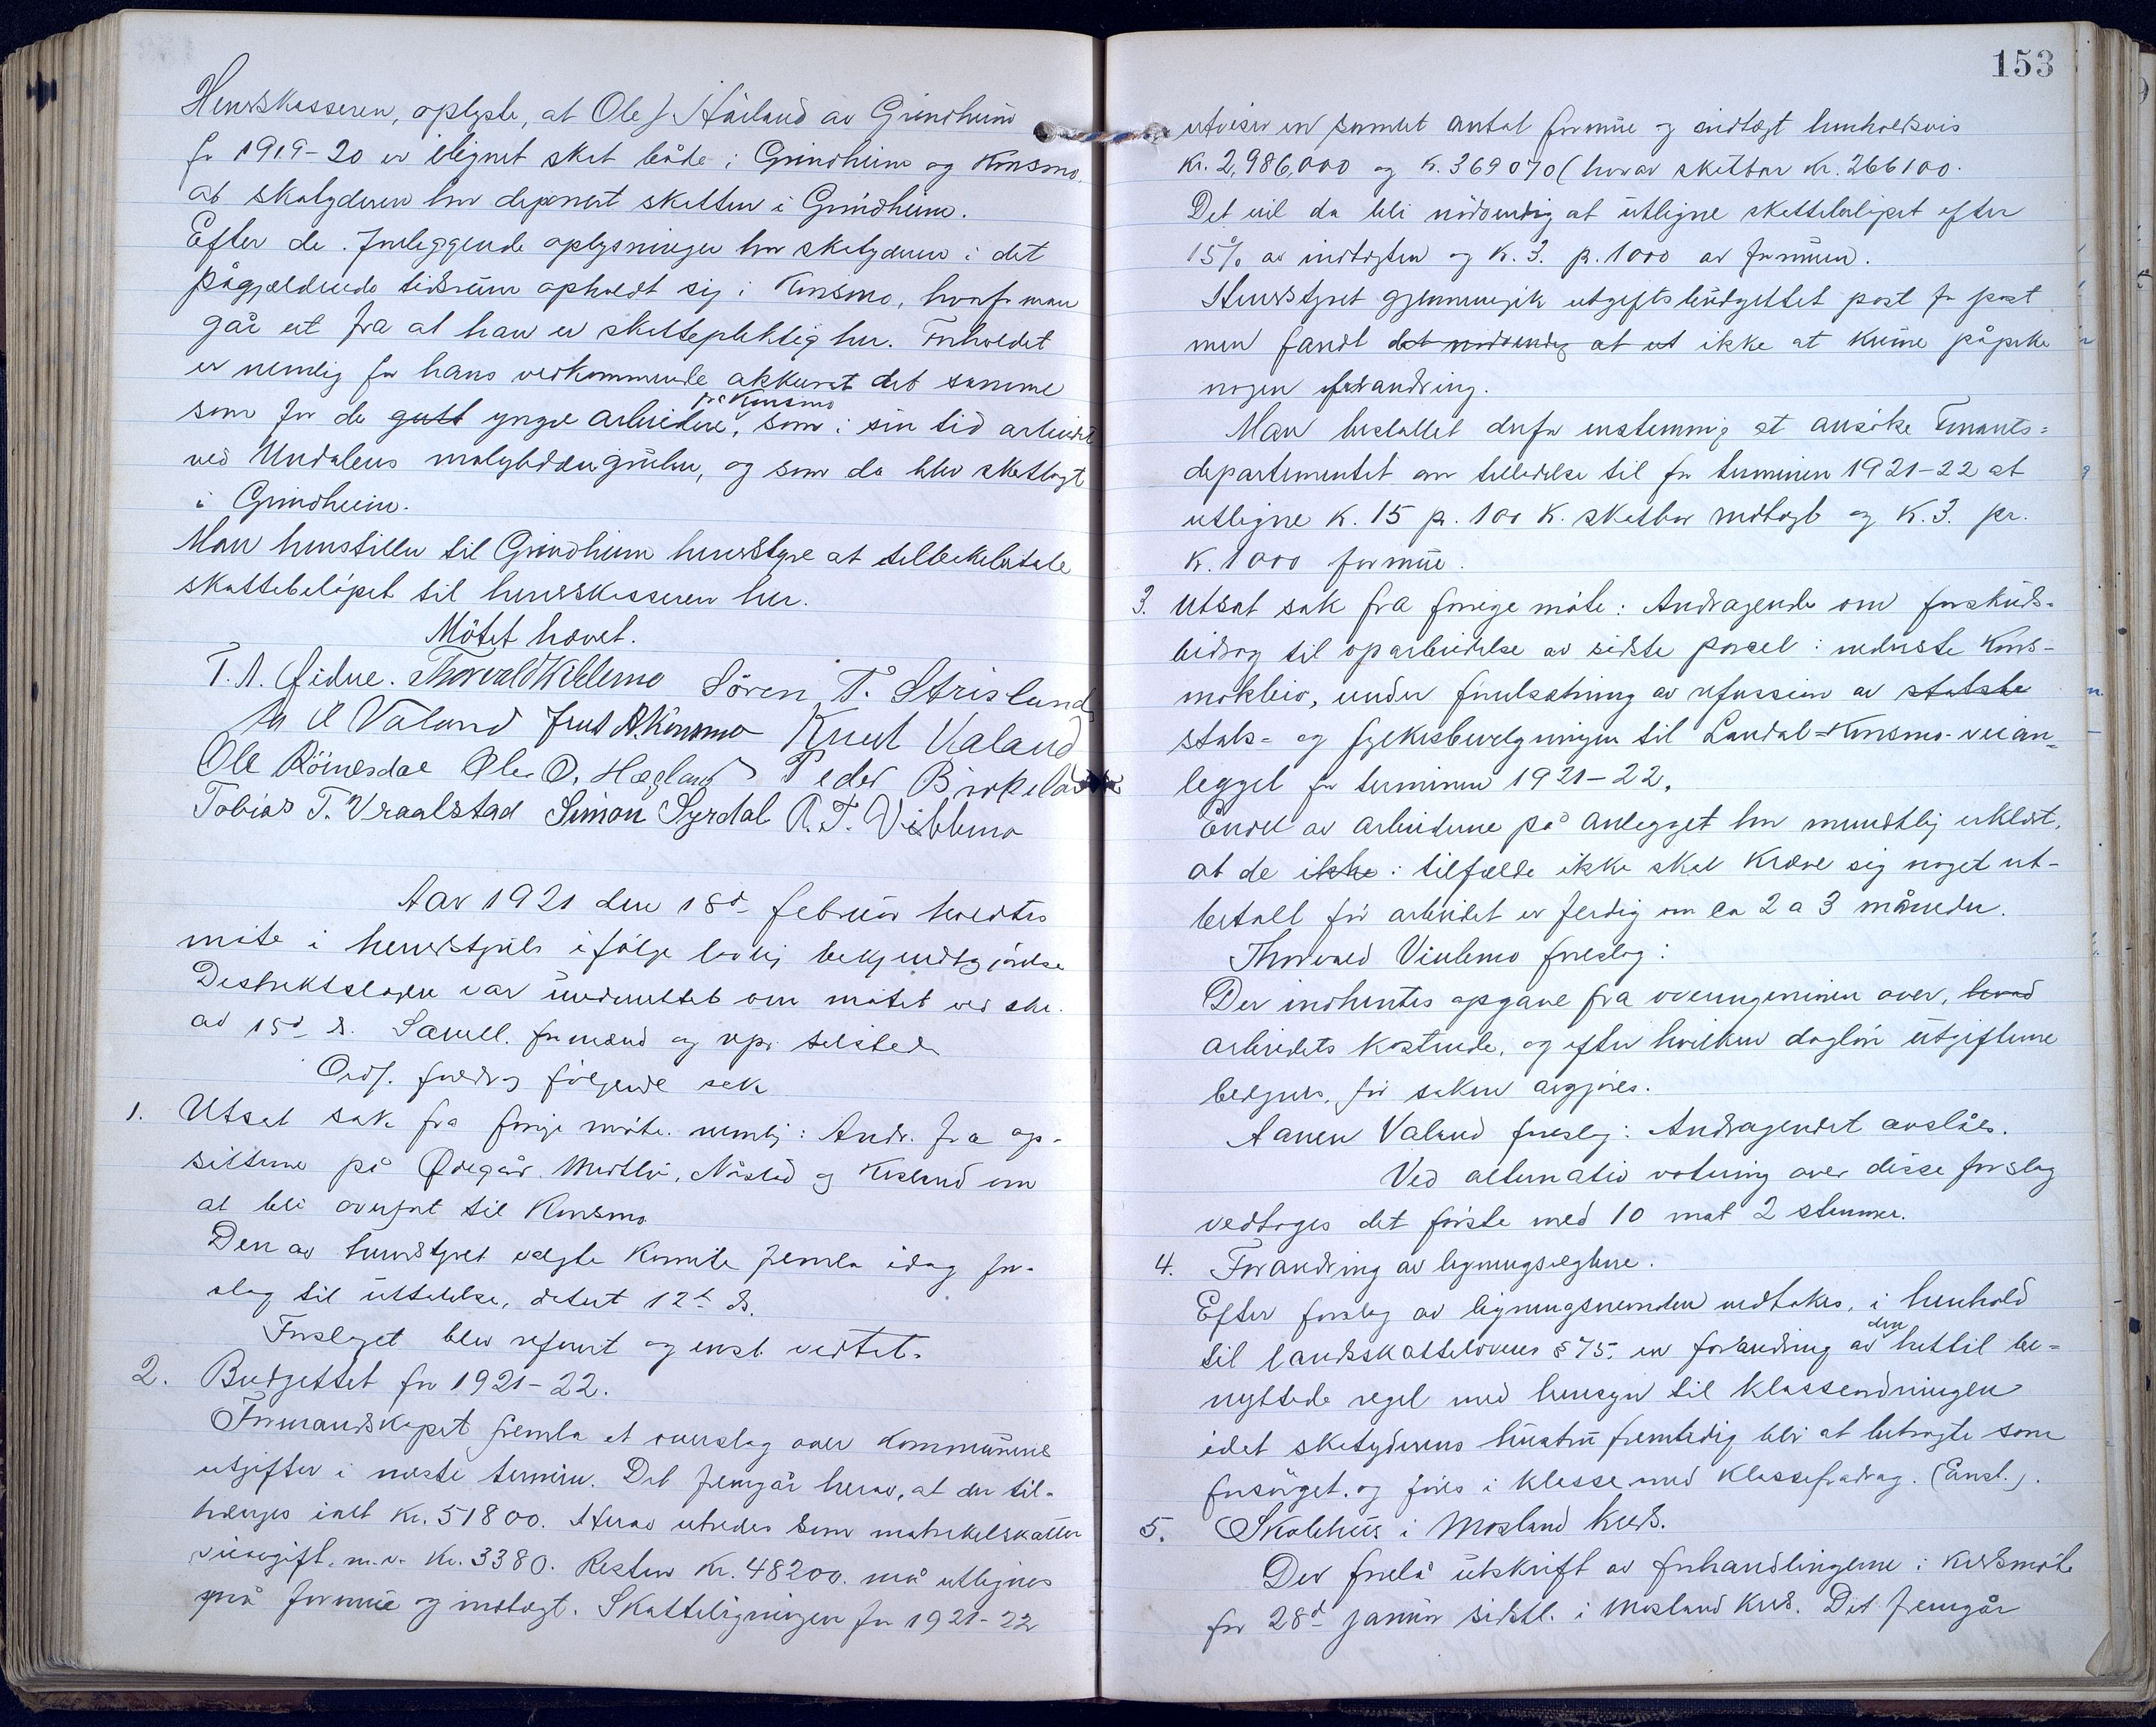 Herredskasseren, oplyste, at Ole J. Håiland av Grindheim
for 1919-20 er ilignet skat både i Grindheim og Konsmo,
at skatyderen har deponert skatten i Grindheim.
Efter de foreliggende oplysninger har skatyderen i det
pågjældende tidsrum opholdt sig i Konsmo, hvorfor man
går ut fra at han er skattepliktig her. Forholdet
er nemlig for hans vedkommende akkurat det samme
som for de gutt yngre arbeidere, fra Konsmo som i sin tid arbeidet
ved Undalens molybdængruber, og som da blev skatlagt
i Grindheim.
Man henstiller til Grindheim herredstyre at tilbakebetale
skattebeløpet til herredskasseren her.
Møtet hævet.
T. A. Øidne. Thorvald Viblemo Sören T. Strisland
A A Valand Jens A. Konsmo Knut Valand
Ole Röinesdal Ole O. Hægland Peder Birkeland
Tobias T. Vraalstad Simon Syrdal A. T. Viblemo
Aar 1921 den 18de februar holdtes
møte i herredstyret ifølge lovlig bekjendtgjørelse
Distriktslægen var underrettet om møtet ved skr.
av 15d ds. Samtl. formænd og repr. tilstede
Ordf. foredrog følgende sak
1. Utsat sak fra forrige møte. nemlig: Andr. fra op-
sitterne på Ødegår. Murtlei, Nåstad og Kisland om
at bli overført til Konsmo
Den av herredstyret valgte komite fremla idag for-
slag til uttalelse, datert 12te ds.
Forslaget blev referert og enst. vedtat.
2. Budgettet for 1921-22.
Formandskapet fremla et overslag over kommunens
utgifter i næste termin. Det fremgår herav, at der til-
trænges ialt kr. 51800. Herav utredes som matrikelskatter
veiavgift. m.v. kr. 3380. Resten kr. 48200. må utlignes
på formue og indtægt. Skatteligningen for 1921-22
153
utviser en samlet antat formue og indtægt henholdsvis
kr. 2,986,000 og kr. 369070 (hvorav skatbar kr. 266100.
Det vil da bli nødvendig at utligne skattebeløpet efter
15% av indtægten og kr. 3. pr. 1000 av formuen.
Herredstyret gjennemgik utgiftsbudgettet post for post
men fandt det nødvendig at ut ikke at kunne påpeke
nogen forandring.
Man besluttet derfor enstemmig at ansøke Finants-
departementet om tilladelse til for terminen 1921-22 at
utligne kr. 15 pr. 100 kr. skatbar indtægt og kr. 3. pr.
kr. 1000 formue.
3. Utsat sak fra forrige møte: Andragende om forskuds-
bidrag til oparbeidelse av sidste parsel i nederste Kons-
mokleiv, under forutsætning av refusjon av statste
stats- og fylkesbevilgningen til Laudal-Konsmo-veian-
legget for terminen 1921-22.
Endel av arbeiderne på anlegget har mundtlig erklært,
at de ikke i tilfælde ikke skal kræve sig noget ut-
betalt før arbeidet er ferdig om ca 2 a 3 måneder.
Thorvald Viblemo foreslog:
Der indhentes opgave fra overingeniøren over, hvad
arbeidets kostende, og efter hvilken daglön utgifterne
beregnes, før saken avgjøres.
Aanen Valand foreslog: Andragendet avslåes.
Ved alternativ votering over disse forslag
vedtoges det første med 10 mot 2 stemmer.
4. Forandring av ligningsreglene.
Efter forslag av ligningsnemnden vedtokes, i henhold
til landsskattelovens § 75. en forandring av den hittil be-
nyttede regel med hensyn til klasseordningen
idet skatyderens hustru fremtidig blir at betragte som
forsørget. og føres i klasse med klassefradrag. (Enst.).
5. Skolehus i Mosland kreds.
Der forelå utskrift av forhandlingerne i kredsmøte
for 28d januar sidstl. i Mosland kreds. Det fremgår